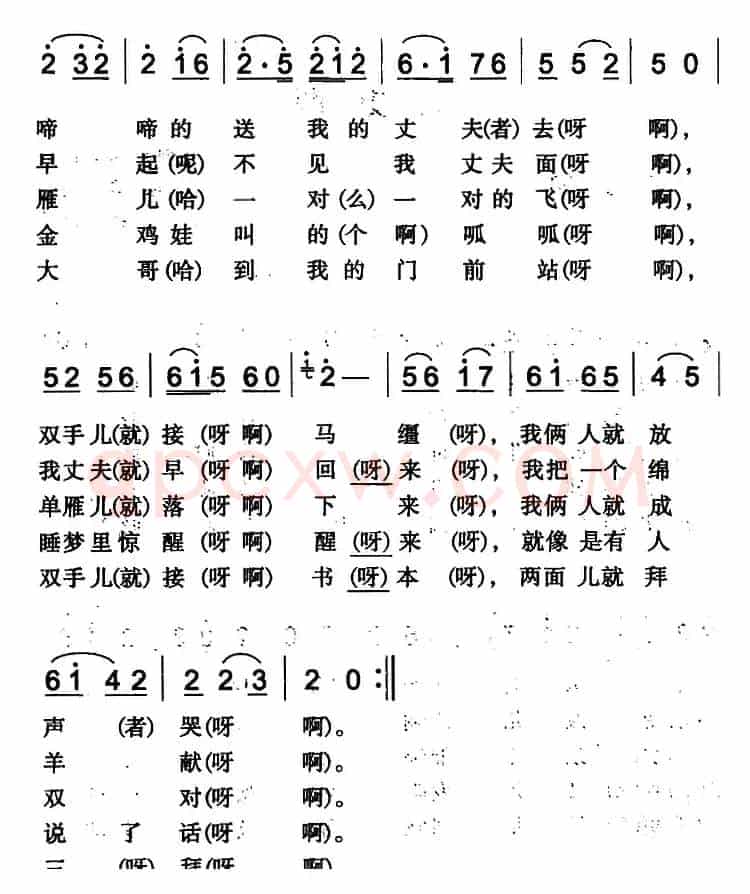 2̇ 3̇2̇ | 2̇ i̇6 | 2̇·5̇ 2̇1̇2̇ | 6·i̇ 76 | 5 52 | 5 0 |
啼 啼的 送 我的 丈 夫(者)去(呀 啊),
早 起(呢)不 见 我 丈夫 面(呀 啊),
雁 儿(哈)一 对(么)一 对的 飞(呀 啊),
金 鸡娃 叫 的(个 啊) 呱 呱(呀 啊),
大 哥(哈)到 我的 门 前 站(呀 啊),
52 56 | 6i̇5 60 | i̇ 2̇ — | 56 i̇7 | 6i̇ 65 | 4 5 |
双手 儿(就) 接 (呀 啊) 马 缰 (呀), 我俩 人就 放
我丈 夫(就) 早 (呀 啊) 回 (呀) 来 (呀), 我把 一个 绵
单雁 儿(就) 落 (呀 啊) 下 来 (呀), 我俩 人就 成
睡梦 里惊 醒 (呀 啊) 醒 (呀) 来 (呀), 就像 是有 人
双手 儿(就) 接 (呀 啊) 书 (呀) 本 (呀), 两面 儿就 拜
6i̇ 42 | 2 23 | 2 0 :||
声 (者) 哭(呀 啊)。
羊 献(呀 啊)。
双 对(呀 啊)。
说 了 话(呀 啊)。
三 (呀) 拜(呀 啊)